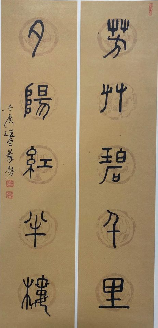 芳艸碧千里
夕陽紅半樓